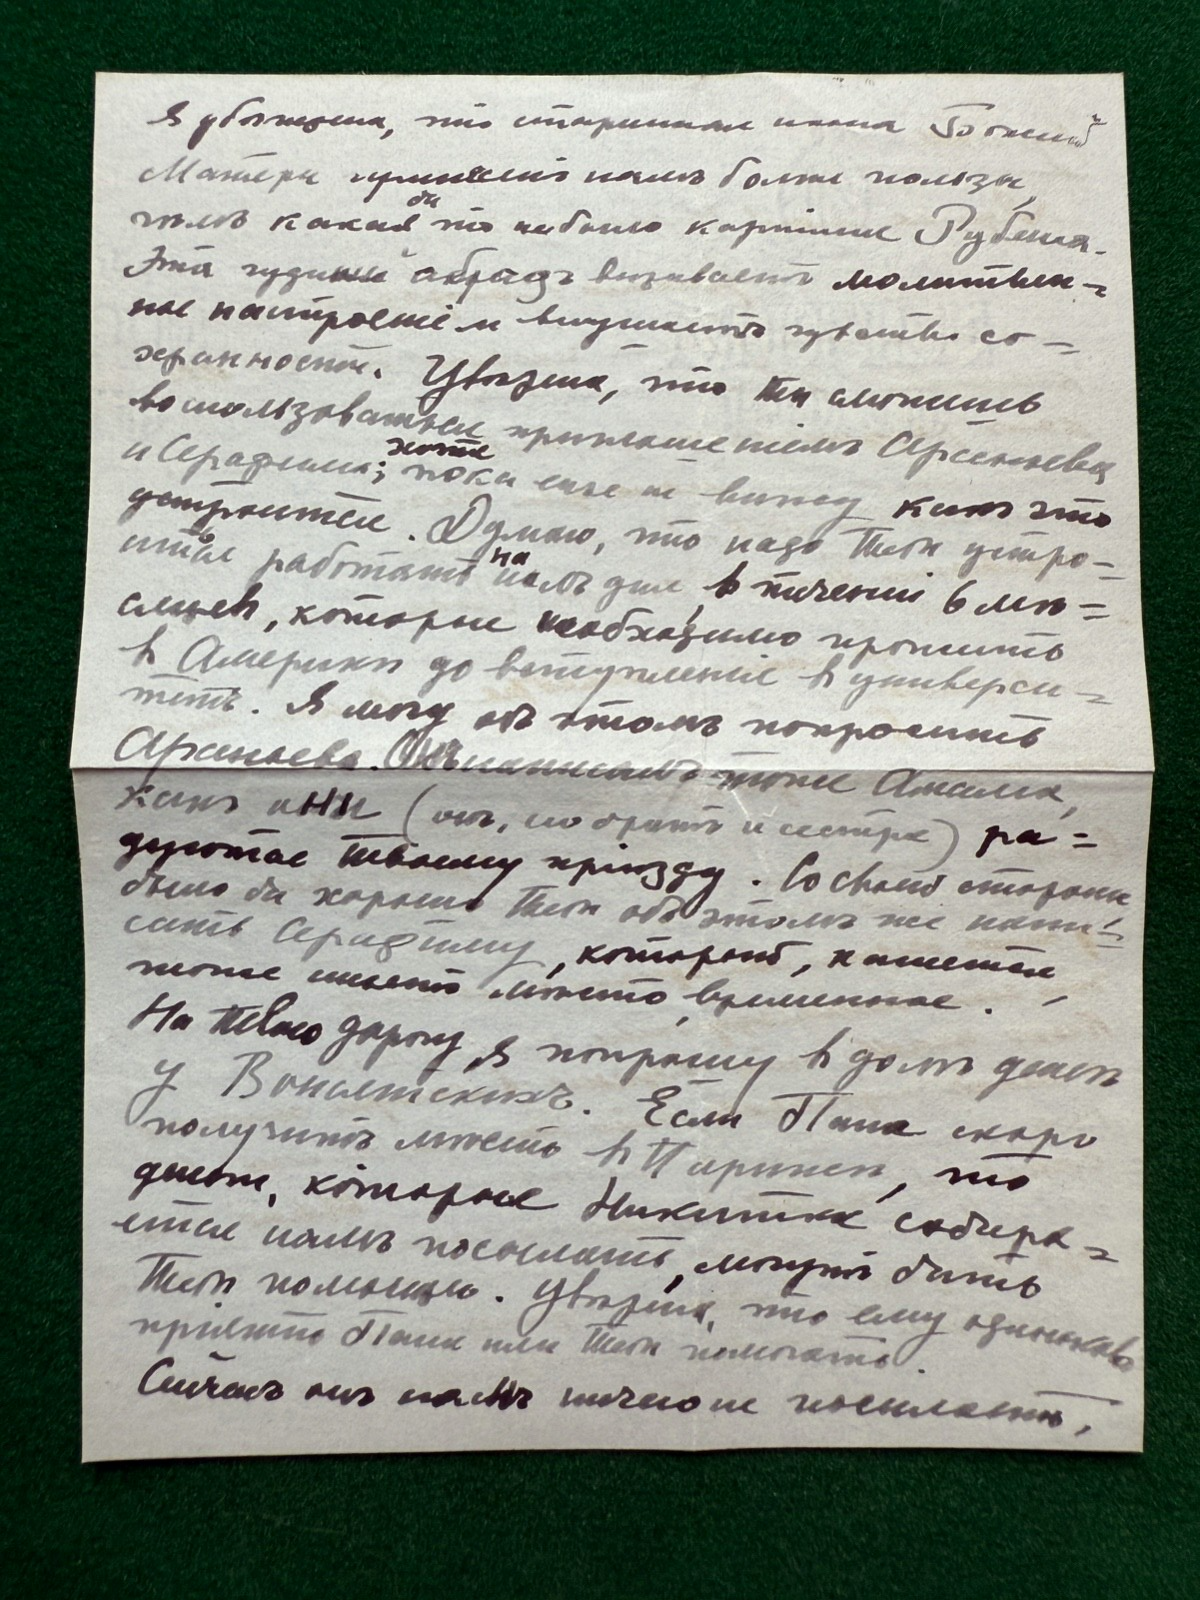 Я убѣждена, что старинная икона Божіей
Матери принесетъ намъ больше пользы,
чѣмъ какая бы то ни было картина Рубенса.
Эта чудный образъ вызываетъ молитвен-
ное настроеніе и внушаетъ чувство со-
хранности. Увѣрена, что ты сможешь
воспользоваться приглашеніемъ Арсеньева
и Серафима; хотя пока еще не вижу какъ это
устроится. Думаю, что надо Тебѣ устро-
иться работать на дѣлѣ, въ теченіи 6 мѣ-
сяцевъ, которые необходимо прожить
въ Америкѣ до вступленія въ универси-
тетъ. Я могу объ этомъ попросить
Арсеньева. Онъ написалъ тоже
какъ они (онъ, его братъ и сестра) ра-
дуются твоему пріѣзду. Со своей стороны
было бы хорошо Тебѣ объ этомъ же напи-
сать Серафиму, который, кажется,
тоже имѣетъ мѣсто, временное.
На Твою дорогу я попрошу въ долгъ денегъ
у Вонлятскихъ. Если Папа скоро
получитъ мѣсто въ Парижѣ, то
деньги, которыя Никитка собира-
ется намъ посылать, могутъ быть
Тебѣ помощью. Увѣрена, что ему одинаково
пріятно Папѣ или Тебѣ помогать.
Сейчасъ онъ намъ ничего не посылаетъ,